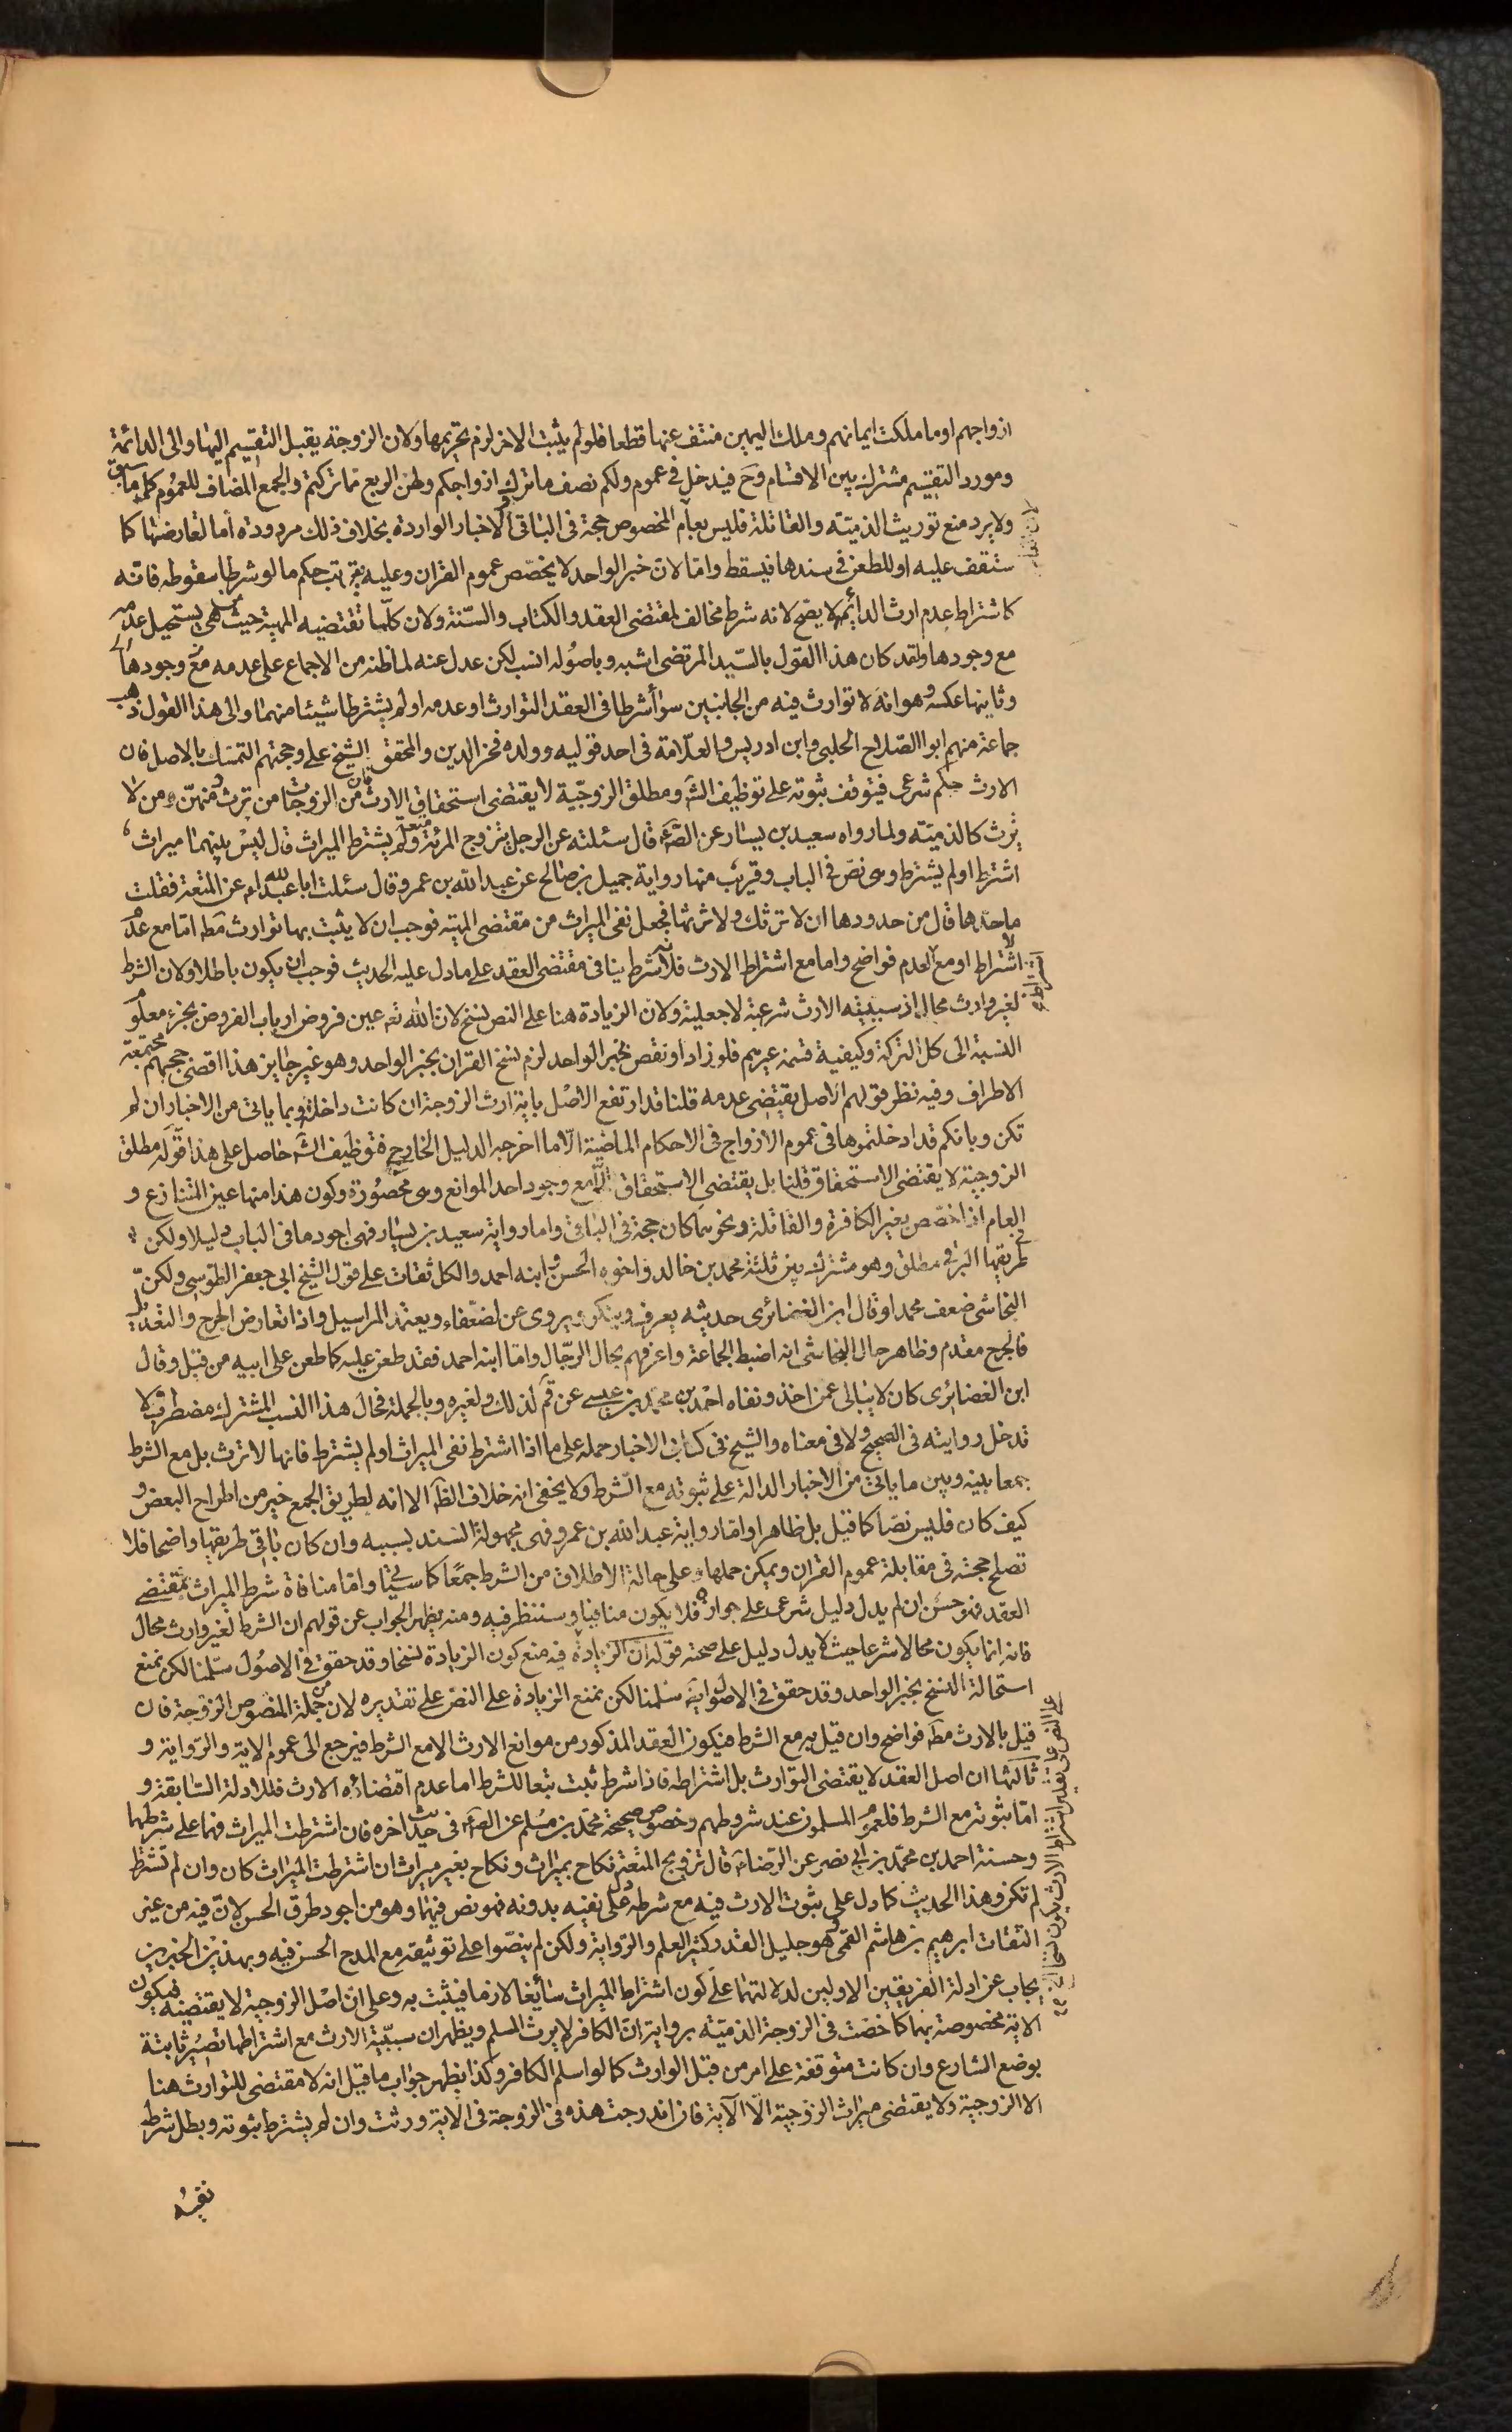 ازواجهم او ما ملكت ايمانهم وملك اليمين منتف عنها قطعا فلو لم يثبت الاخر لزم تحريمها ولان الزوجة يقبل التقسيم اليها والى الدائمة
ومورد التقسيم مشترك بين الاقسام وح فيدخل في عموم ولكم نصف ما ترك ازواجكم ولهن الربع مما تركتم والجمع المضاف للعموم كما سبق
ولا يرد منع توريث الذمية والقاتلة فليس بعام المخصوص حجة في الباقي والاخبار الواردة بخلاف ذلك مردودة أما لتعارضها كما
ستقف عليه او للطعن في سندها فيسقط واما لان خبر الواحد لا يخصص عموم القران وعليه يترتب حكم ما لو شرطا سقوطه فانه
كاشتراط عدم ارث الدائم لا يصح لانه شرط مخالف لمقتضى العقد والكتاب والسنة ولان كلما تقتضيه المهية حيث هي يستحيل عدمه
مع وجودها ولقد كان هذا القول بالسيد المرتضى اشبه وباصوله انسب لكن عدل عنه لما ظنه من الاجماع على عدمه مع وجودها
وثاينها عكسه وهو انه لا توارث فيه من الجانبين سوأ شرطا في العقد التوارث او عدمه او لم يشترطا شيئا منهما والى هذا القول ذهب
جماعة منهم ابو الصلاح الحلبي وابن ادريس والعلامة في احد قوليه وولده فخر الدين والمحقق الشيخ علي وحجتهم التمسك بالاصل فان
الارث حكم شرعي فيتوقف ثبوته على توظيف الش ومطلق الزوجية لا يقتضى استحقاق الارث فان من الزوجات من ترث ومنهن من لا
ترث كالذمية ولما رواه سعيد بن يسار عن الص ع قال سئلته عن الرجل يتزوج المرئة متعة ولم يشترط الميراث قال ليس بينهما ميراث
اشترط او لم يشترط وهى نص في الباب وقريب منها رواية جميل بن صالح عن عبد الله بن عمرو قال سئلت ابا عبد الله ع عن المتعة فقلت
ما حدها قال من حدودها ان لا ترثك ولا ترثها فجعل نفى الميراث من مقتضى المهية فوجب ان لا يثبت بها توارث مط اما مع عدم
اشتراط او مع العدم فواضح واما مع اشتراط الارث فلانه شرط ينافى مقتضى العقد على ما دل عليه الحديث فوجب ان يكون باطلا ولان الشرط
لغير وارث محال اذ سببية الارث شرعية لا جعلية ولان الزيادة هنا على النص نسخ لان الله تعه عين فروض ارباب الفروض بجزء معلوم
النسبة الى كل التركة وكيفية قسمة غيرهم فلو زاد او نقص بخبر الواحد لزم نسخ القران بخبر الواحد وهو غير جايز هذا اقصى حججهم مجتمعة
الاطراف وفيه نظر قولهم الاصل يقتضى عدمه قلنا قد ارتفع الاصل باية ارث الزوجة ان كانت داخلة وبما ياتى من الاخبار ان لم
تكن وبانكم قد ادخلتموها في عموم الازواج في الاحكام الماضية الا ما اخرجه الدليل الخارج فتوظيف الش حاصل على هذا قوله مطلق
الزوجية لا يقتضى الاستحقاق قلنا بل يقتضى الاستحقاق الا مع وجود احد الموانع وهى محصورة وكون هذا منها عين المتنازع و
العام اذا خصص بغير الكافرة والقاتلة ونحوهما كان حجة في الباقى واما رواية سعيد بن يسار فهى اجود ما في الباب دليلا ولكن في
طريقها البرقي مطلق وهو مشترك بين ثلثة محمد بن خالد واخوه الحسن وابنه احمد والكل ثقات على قول الشيخ ابى جعفر الطوسى ولكن
النجاشى ضعف محمدا وقال ابن الغضائرى حديثه يعرف وينكر ويروى عن الضعفاء ويعتمد المراسيل واذا تعارض الجرح والتعديل
فالجرح مقدم وظاهر حال النجاشى انه اضبط الجماعة واعرفهم بحال الرجال واما ابنه احمد فقد طعن عليه كما طعن على ابيه من قبل وقال
ابن الغضائرى كان لا يبالى عمن اخذ ونفاه احمد بن محمد بن عيسى عن قم لذلك ولغيره وبالجملة فحال هذا النسب المشترك مضطرب لا
تدخل روايته في الصحيح ولا في معناه والشيخ في كتابى الاخبار حمله على ما اذا اشترط نفى الميراث او لم يشترط فانها لا ترث بل مع الشرط
جمعا بينه وبين ما ياتى من الاخبار الدالة على ثبوته مع الشرط ولا يخفى انه خلاف الظ الا انه لطريق الجمع خير من اطراح البعض و
كيف كان فليس نصا كما قيل بل ظاهرا واما رواية عبد الله بن عمرو فهى مجهولة السند بسببه وان كان باقى طريقها واضحا فلا
تصلح حجة في مقابلة عموم القران ويمكن حملها على حالة الاطلاق من الشرط جمعا كما سيجئ واما منافاة شرط الميراث لمقتضى
العقد فهو حسن ان لم يدل دليل شرعى على جوازه فلا يكون منافيا وسننظر فيه ومنه يظهر الجواب عن قولهم ان الشرط لغير وارث محال
فانه انما يكون محالا شرعا حيث لا يدل دليل على صحته قوله ان الزيادة فيه منع كون الزيادة نسخا وقد حقق في الاصول سلمنا لكن نمنع
استحالة النسخ بخبر الواحد وقد حقق في الاصول ايضا سلمنا لكن نمنع الزيادة على النص على تقديره لان من جملة المنصوص الزوجة فان
قيل بالارث مط فواضح وان قيل به مع الشرط فيكون العقد المذكور من موانع الارث الا مع الشرط فيرجع الى عموم الاية والرواية و
ثالثها ان اصل العقد لا يقتضى التوارث بل اشتراطه فاذا شرط ثبت تبعا للشرط اما عدم اقتضائه الارث فللادلة السابقة و
اما ثبوته مع الشرط فلعموم المسلمون عند شروطهم وخصوص صحيحة محمد بن مسلم عن الص ع في حديث اخره فان اشترطت الميراث فهما على شرطهما
وحسنة احمد بن محمد بن ابي نصر عن الرضا ع قال تزويج المتعة نكاح بميراث ونكاح بغير ميراث ان اشترطت الميراث كان وان لم تشترط
لم تكن وهذا الحديث كما دل على ثبوت الارث فيه مع شرطه دل على نفيه بدونه فهو نص فيهما وهو من اجود طرق الحسن لان فيه من غير
الثقات ابرهيم بن هاشم القمى وهو جليل القدر كثير العلم والرواية ولكن لم ينصوا على توثيقه مع المدح الحسن فيه وبهذين الخبرين
يجاب عن ادلة الفريقين الاولين لدلالتهما على كون اشتراط الميراث سائغا لازما فيثبت به وعلى ان اصل الزوجية لا يقتضيه فيكون
الاية مخصوصة بهما كما خصت في الزوجة الذمية برواية ان الكافر لا يرث المسلم ويظهر ان سببية الارث مع اشتراطها تصير ثابتة
بوضع الشارع وان كانت متوقفة على امر من قبل الوارث كما لو اسلم الكافر وكذا يظهر جواب ما قيل انه لا مقتضى للتوارث هنا
الا الزوجية ولا يقتضى ميراث الزوجية الا الآية فان اندرجت هذه في الزوجة في الآية ورثت وان لم يشترط ثبوته وبطل شرط
نفيه